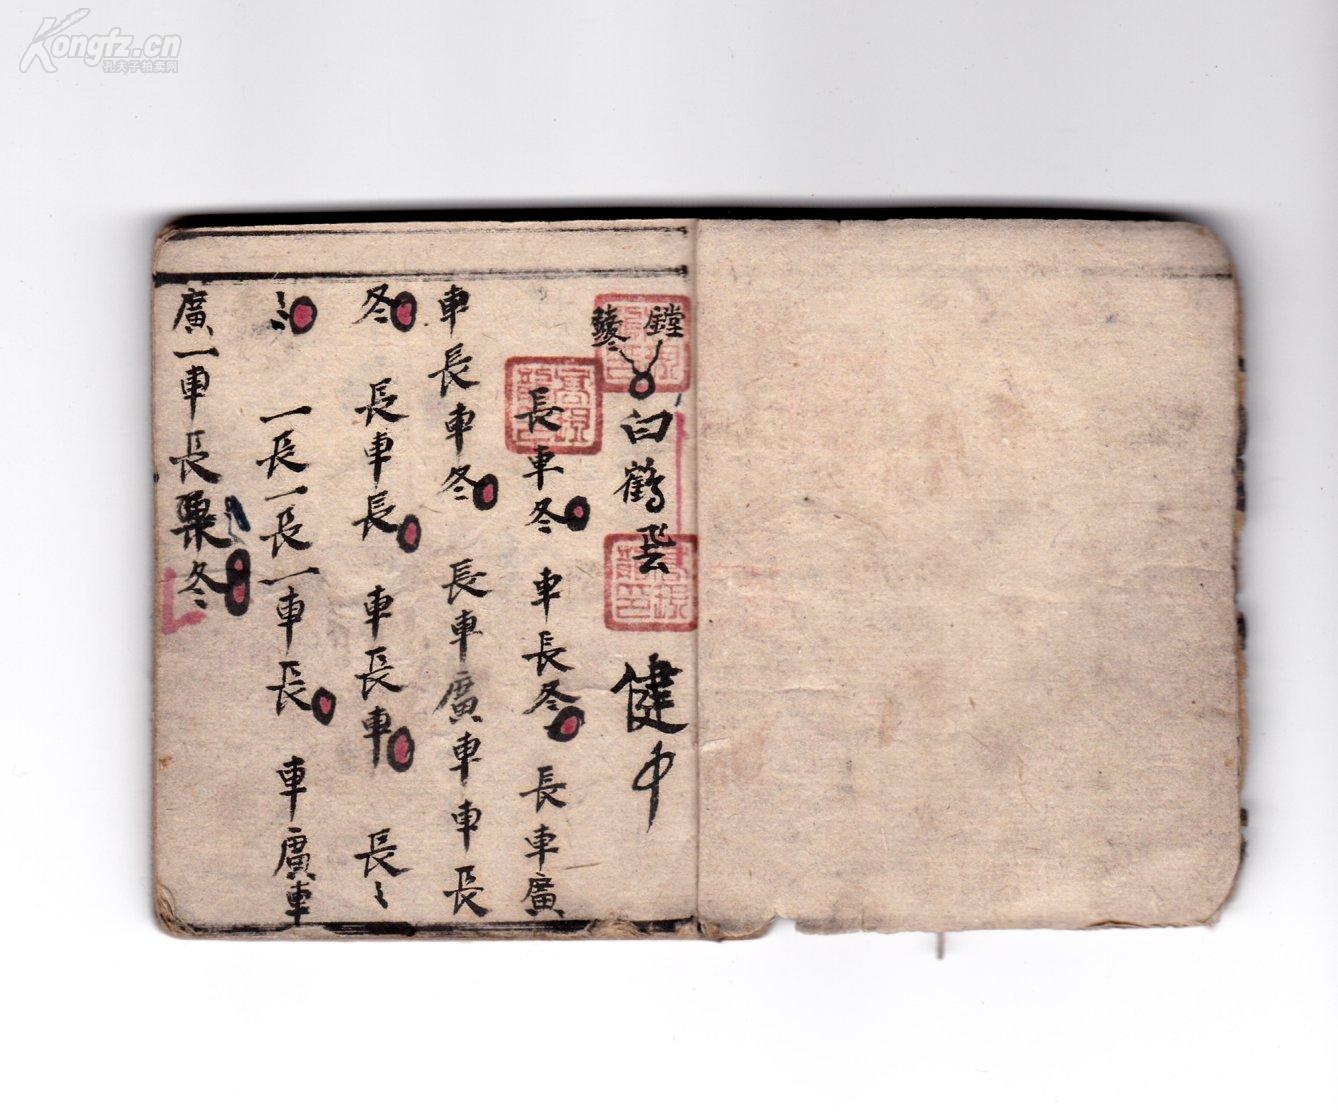 Kongfz.cn
孔夫子拍卖网
鑼 鏜
白鶴飛 健中
長車冬 車長冬 長車廣
車長車冬 長車廣車車長
冬 長車長 車長車 長〻
〻 一長一長一車長 車廣車
廣一車長冬